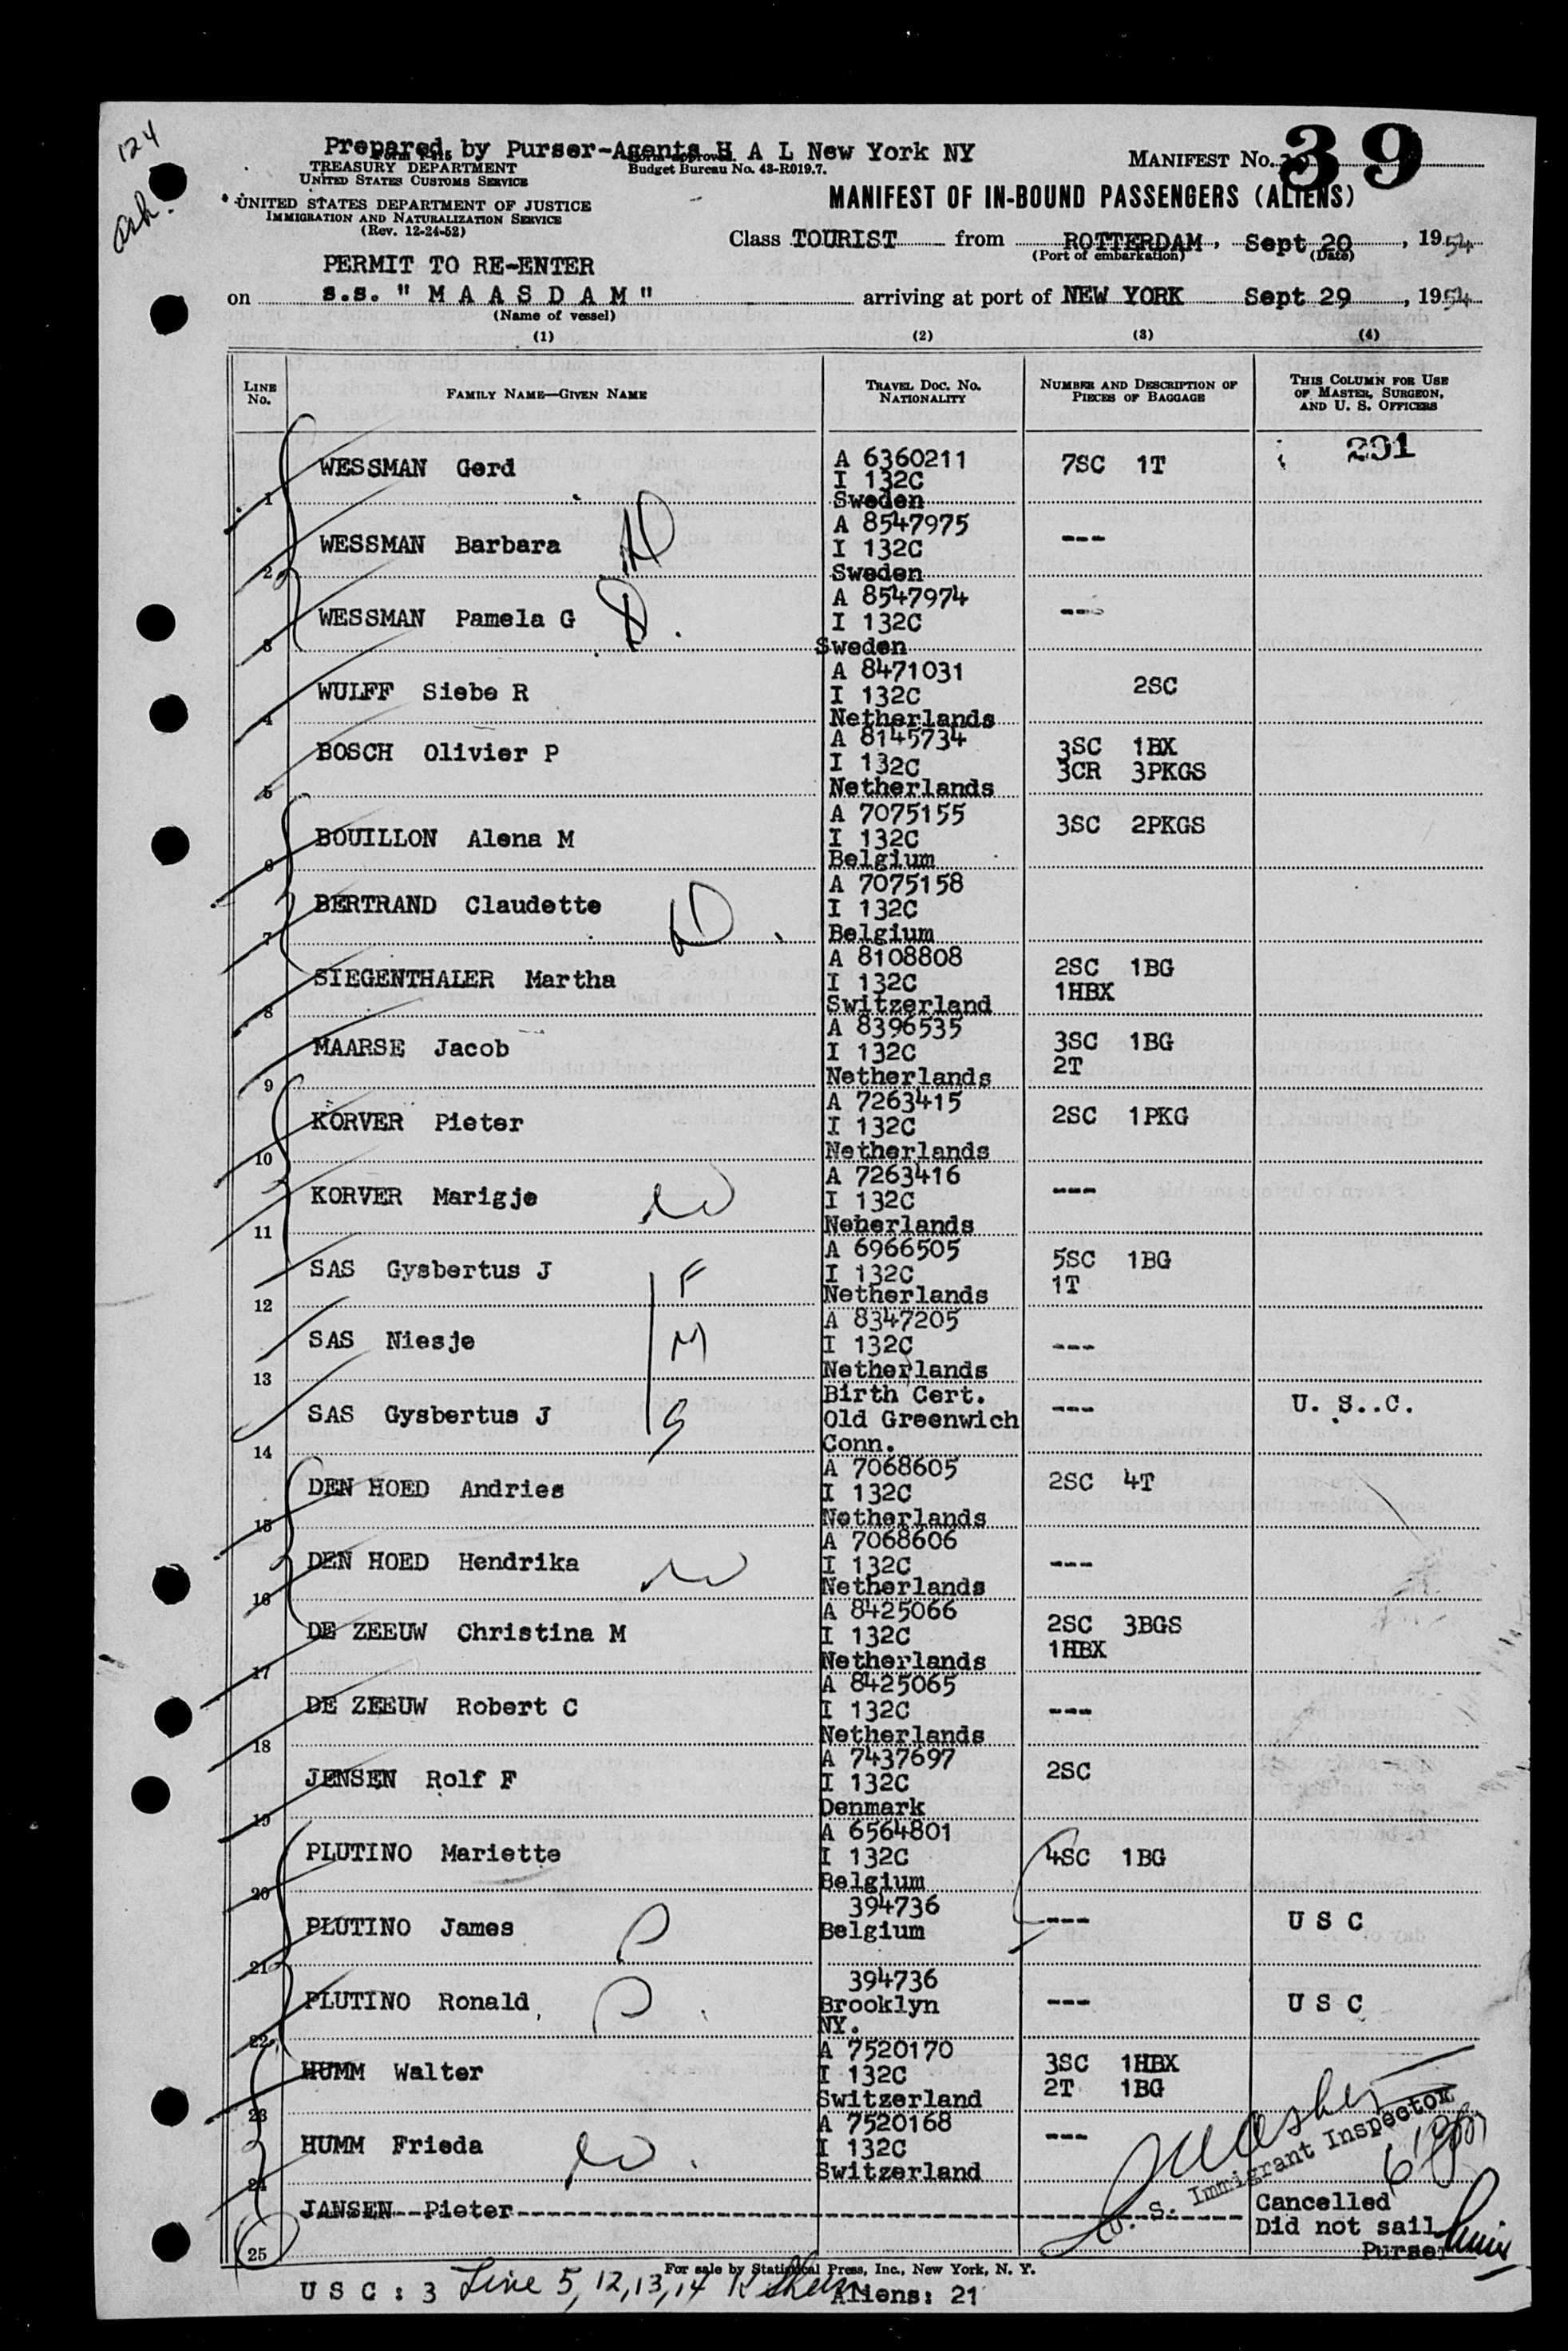 124
Ash.
Prepared by Purser-Agents H A L New York NY
Budget Bureau No. 43-R019.7.
TREASURY DEPARTMENT
UNITED STATES CUSTOMS SERVICE
UNITED STATES DEPARTMENT OF JUSTICE
IMMIGRATION AND NATURALIZATION SERVICE
(Rev. 12-24-52)
MANIFEST NO. 39
MANIFEST OF IN-BOUND PASSENGERS (ALIENS)
Class TOURIST from ROTTERDAM, Sept 20, 1954
(Port of embarkation) (Date)
PERMIT TO RE-ENTER
on s.s. " M A A S D A M " arriving at port of NEW YORK Sept 29, 1954
(Name of vessel)
(1) (2) (3) (4)
LINE NO. FAMILY NAME—GIVEN NAME TRAVEL DOC. NO. NATIONALITY NUMBER AND DESCRIPTION OF PIECES OF BAGGAGE THIS COLUMN FOR USE OF MASTER, SURGEON, AND U. S. OFFICERS
291
1 WESSMAN Gerd A 6360211 I 132C Sweden 7SC 1T
2 WESSMAN Barbara D A 8547975 I 132C Sweden ---
3 WESSMAN Pamela G D. A 8547974 I 132C Sweden ---
4 WULFF Siebe R A 8471031 I 132C Netherlands 2SC
5 BOSCH Olivier P A 8145734 I 132C Netherlands 3SC 1BX 3CR 3PKGS
6 BOUILLON Alena M A 7075155 I 132C Belgium 3SC 2PKGS
7 BERTRAND Claudette D. A 7075158 I 132C Belgium
8 SIEGENTHALER Martha A 8108808 I 132C Switzerland 2SC 1BG 1HBX
9 MAARSE Jacob A 8396535 I 132C Netherlands 3SC 1BG 2T
10 KORVER Pieter A 7263415 I 132C Netherlands 2SC 1PKG
11 KORVER Marigje W A 7263416 I 132C Neherlands ---
12 SAS Gysbertus J F A 6966505 I 132C Netherlands 5SC 1BG 1T
13 SAS Niesje M A 8347205 I 132C Netherlands ---
14 SAS Gysbertus J S Birth Cert. Old Greenwich Conn. --- U. S..C.
15 DEN HOED Andries A 7068605 I 132C Netherlands 2SC 4T
16 DEN HOED Hendrika W A 7068606 I 132C Netherlands ---
17 DE ZEEUW Christina M A 8425066 I 132C Netherlands 2SC 3BGS 1HBX
18 DE ZEEUW Robert C A 8425065 I 132C Netherlands ---
19 JENSEN Rolf F A 7437697 I 132C Denmark 2SC
20 PLUTINO Mariette A 6564801 I 132C Belgium 4SC 1BG
21 PLUTINO James 394736 Belgium --- U S C
22 PLUTINO Ronald 394736 Brooklyn NY. --- U S C
23 HUMM Walter A 7520170 I 132C Switzerland 3SC 1HBX 2T 1BG
24 HUMM Frieda W. A 7520168 I 132C Switzerland ---
25 JANSEN Pieter Cancelled Did not sail Purser
U. S. Immigrant Inspector
For sale by Statistical Press, Inc., New York, N. Y.
U S C : 3 Line 5, 12, 13, 14 Aliens: 21